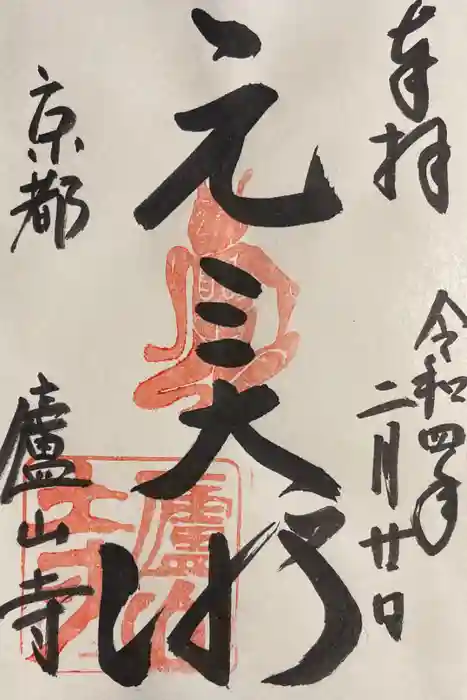 奉拝
令和四年
二月廿日
元三大師
京都
廬山寺